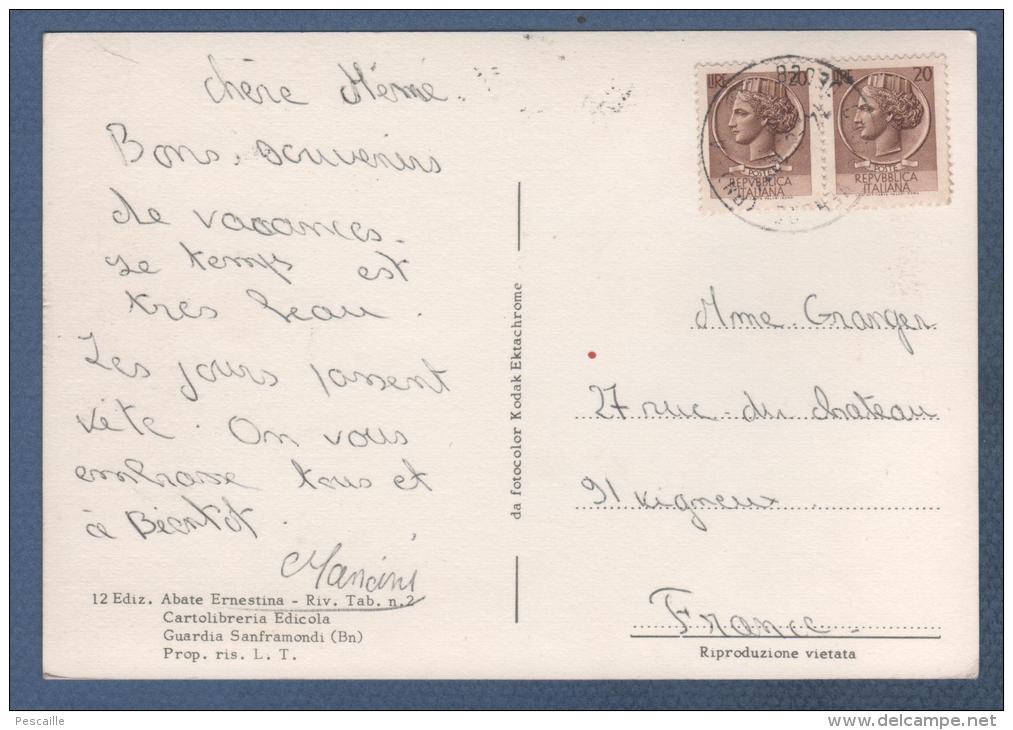 chère Mémé.
Bons souvenirs
de vacances.
Le temps est
tres beau.
Les jours passent
vite. On vous
embrasse tous et
à Bientot.
Mancini
12 Ediz. Abate Ernestina - Riv. Tab. n.2
Cartolibreria Edicola
Guardia Sanframondi (Bn)
Prop. ris. L. T.
da fotocolor Kodak Ektachrome
LIRE 20
POSTE
REPVBBLICA
ITALIANA
LIRE 20
POSTE
REPVBBLICA
ITALIANA
Mme Granger
27 rue du chateau
91 Vigneux
France
Riproduzione vietata
Pescaille
www.delcampe.net